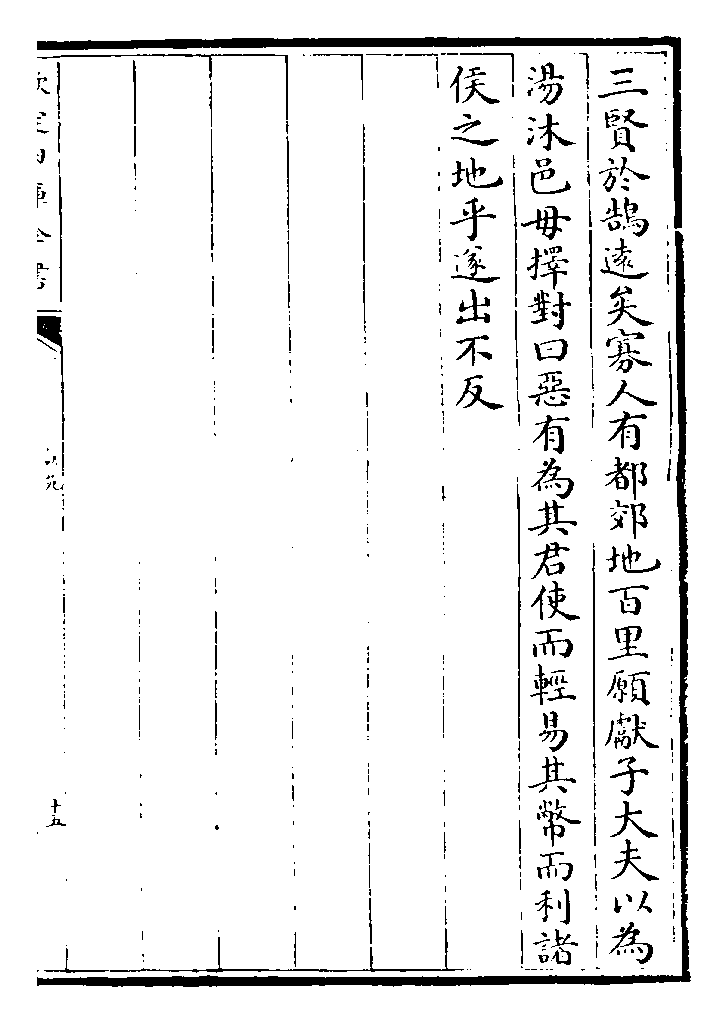 三賢於鵠遠矣寡人有都郊地百里願獻子大夫以為
湯沐邑毋擇對曰惡有為其君使而輕易其幣而利諸
侯之地乎遂出不反
十五